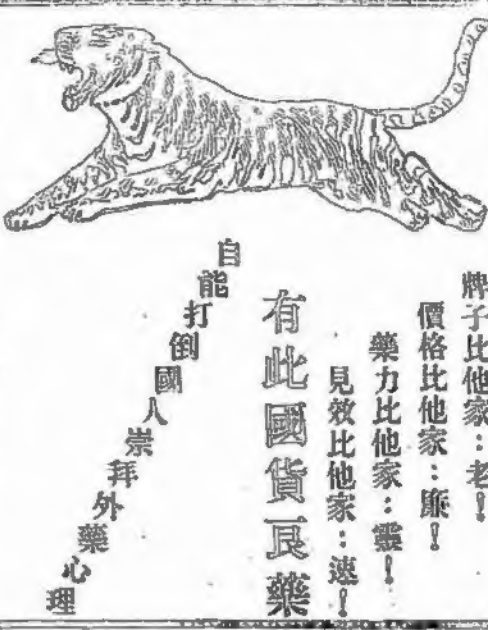 牌子比他家：老！
價格比他家：廉！
藥力比他家：靈！
見效比他家：速！
有此國貨良藥
自能打倒國人崇拜外藥心理